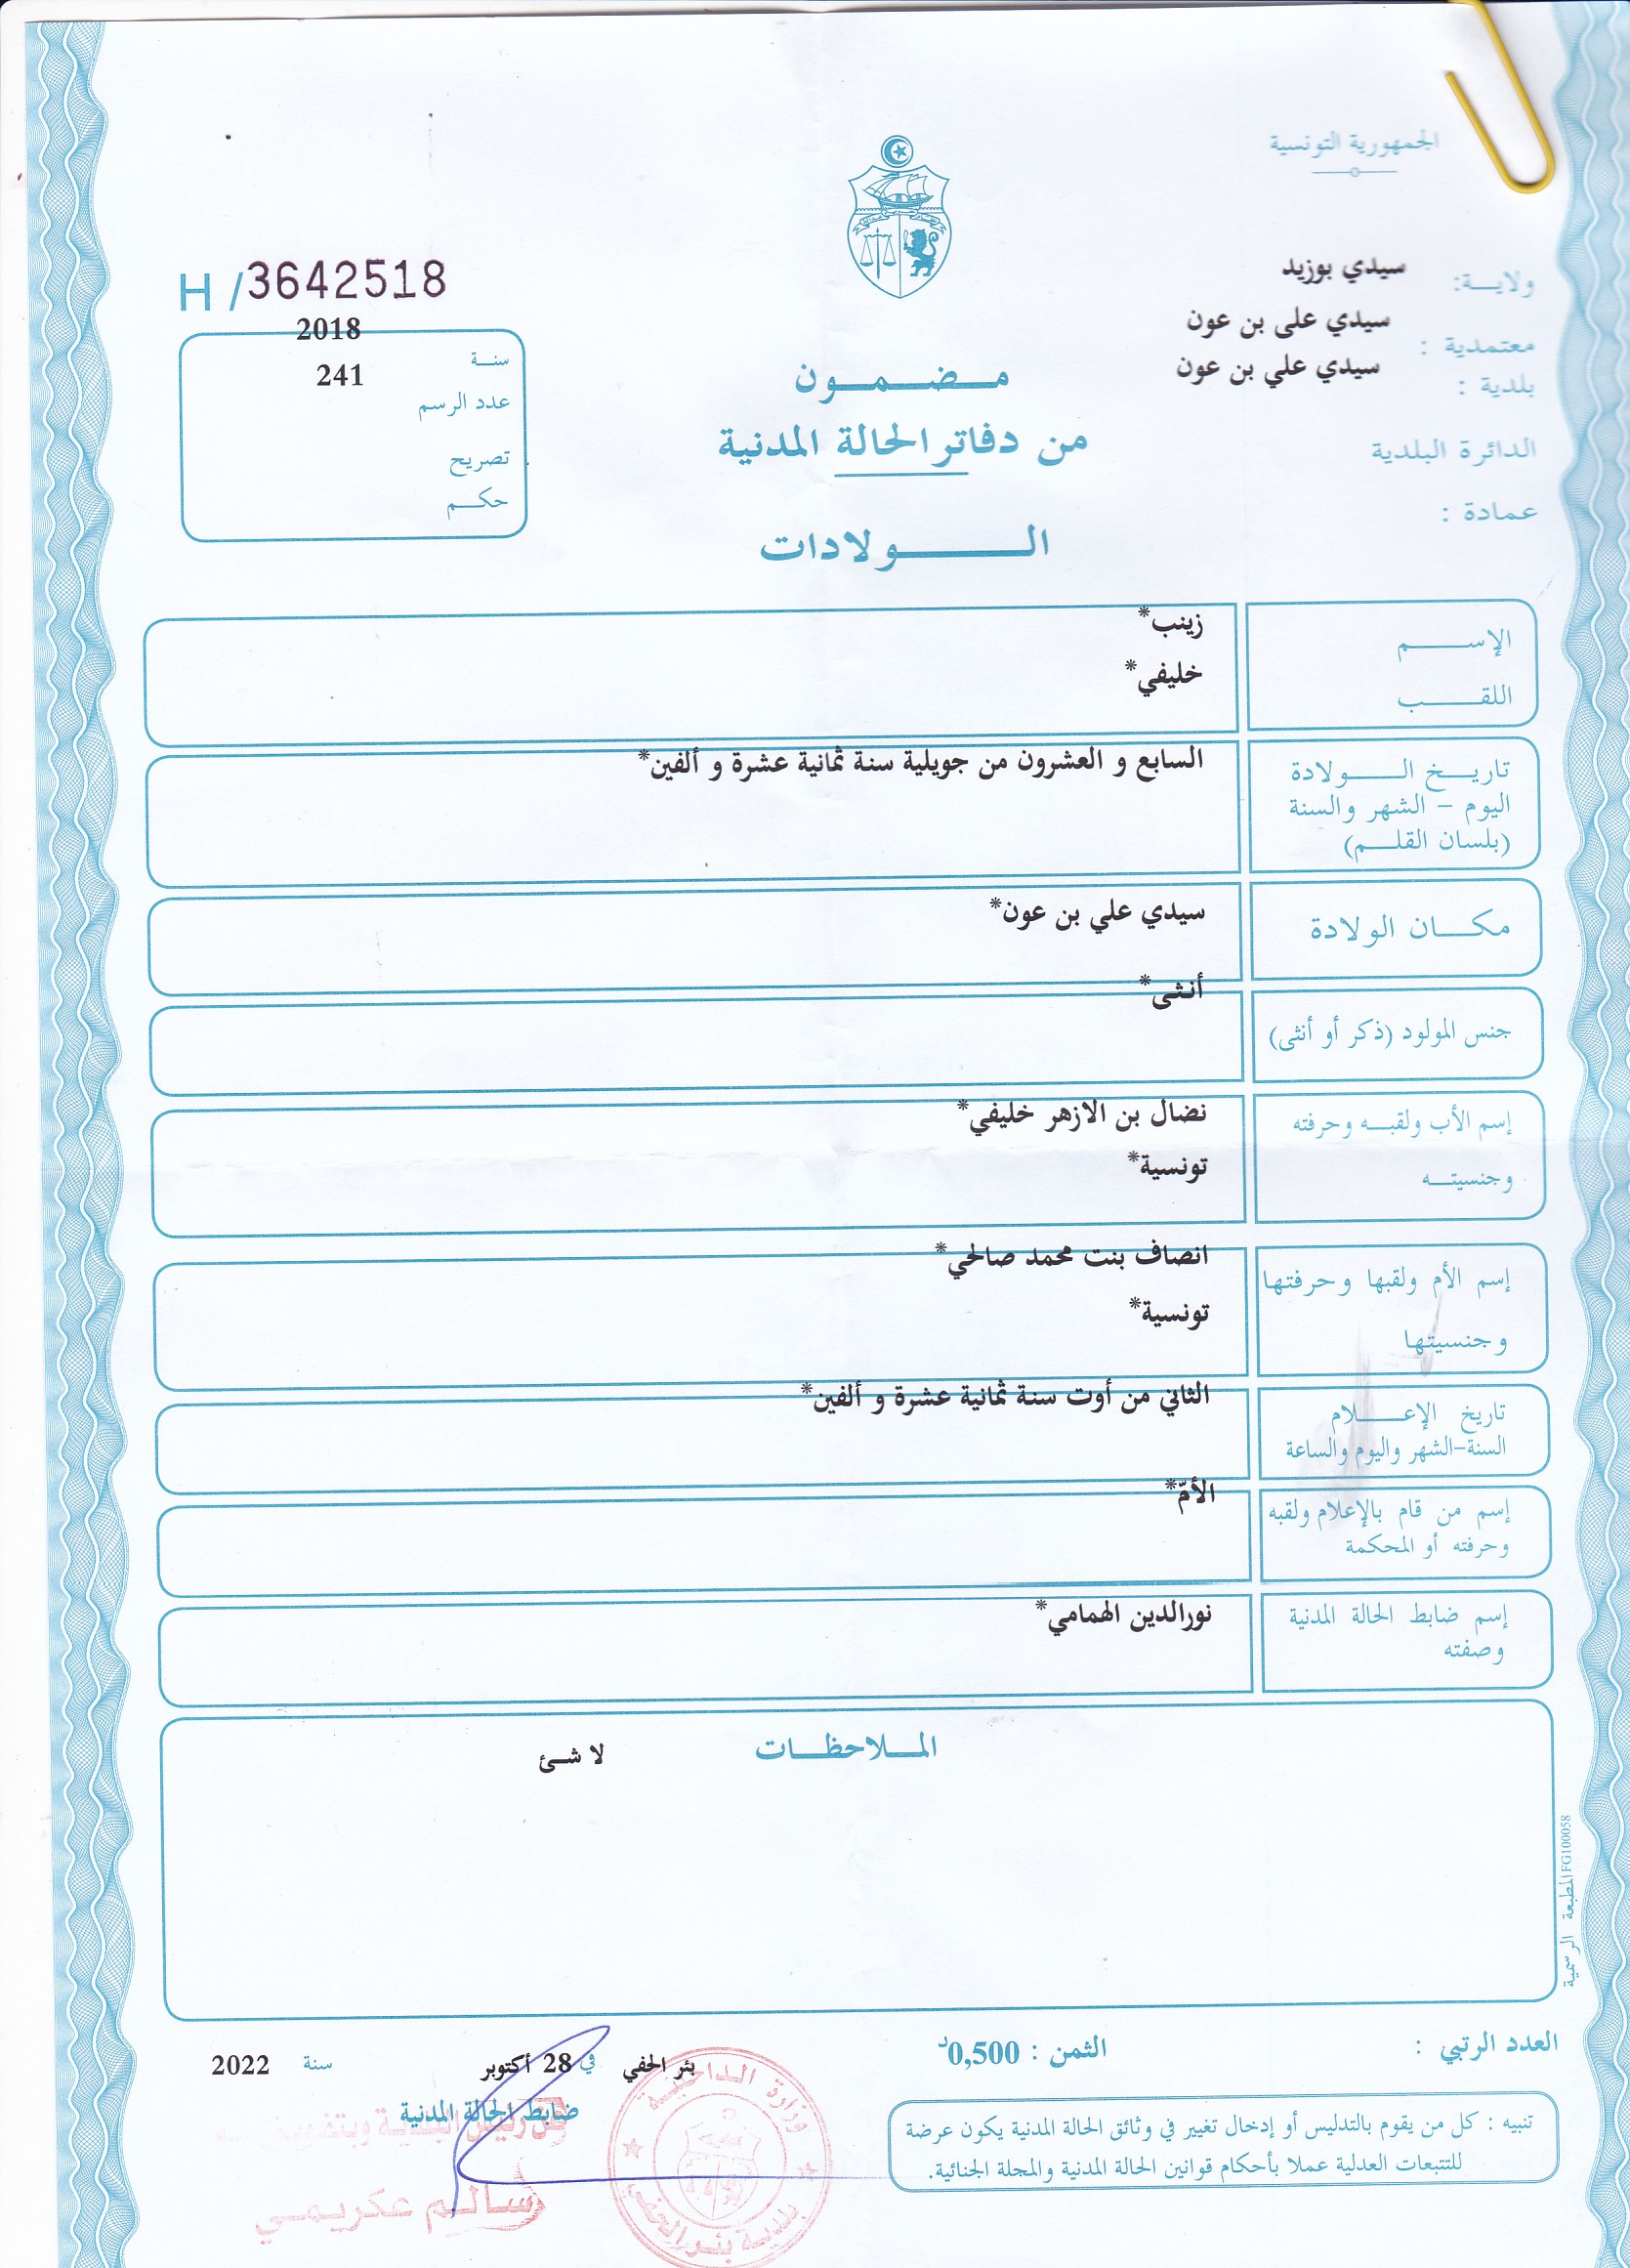 الجمهورية التونسية
ولايـــة: سيدي بوزيد
معتمدية : سيدي على بن عون
بلدية : سيدي علي بن عون
الدائرة البلدية
عمادة :
H /3642518
سنــة 2018
عدد الرسم 241
تصريح
حكــم
مــضــمــون
من دفاتر الحالة المدنية
الــولادات
الإســـم زينب*
اللقـــب خليفي*
تاريـــخ الـــولادة السابع و العشرون من جويلية سنة ثمانية عشرة و ألفين*
اليوم – الشهر والسنة
(بلسان القلـــم)
مكـــان الولادة سيدي علي بن عون*
جنس المولود (ذكر أو أنثى) أنثى*
إسم الأب ولقبــه وحرفته نضال بن الازهر خليفي*
وجنسيتــه تونسية*
إسم الأم ولقبها وحرفتها انصاف بنت محمد صالحي*
وجنسيتها تونسية*
تاريخ الإعـــلام الثاني من أوت سنة ثمانية عشرة و ألفين*
السنة-الشهر واليوم والساعة
إسم من قام بالإعلام ولقبه الأمّ*
وحرفته أو المحكمة
إسم ضابط الحالة المدنية نورالدين الهمامي*
وصفته
المــلاحظــات
لا شئ
المطبعة الرسمية FG100058
العدد الرتبي :
الثمن : 0,500د
بئر الحفي في 28 أكتوبر سنة 2022
ضابط الحالة المدنية
سالم عكريمي
وزارة الداخلية
بلدية بئر الحفي
تنبيه : كل من يقوم بالتدليس أو إدخال تغيير في وثائق الحالة المدنية يكون عرضة
للتتبعات العدلية عملا بأحكام قوانين الحالة المدنية والمجلة الجنائية.